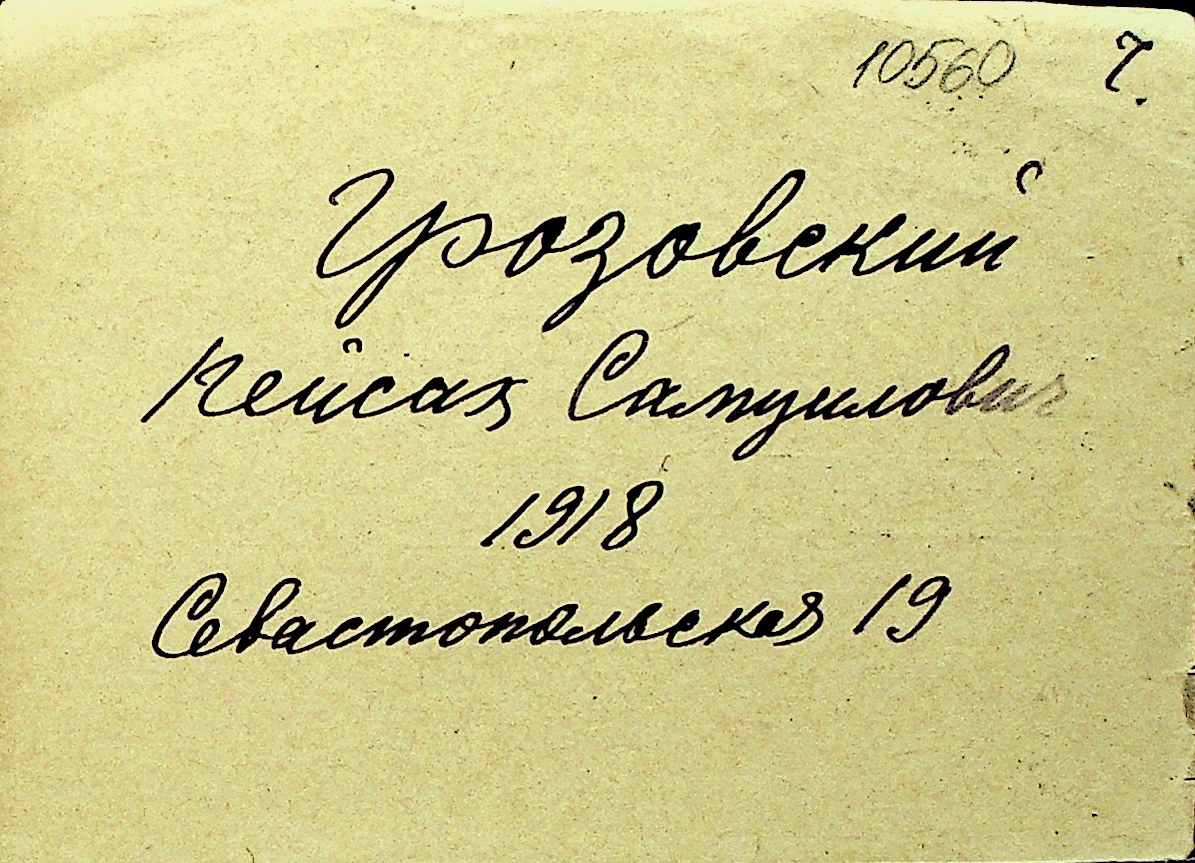 10560 7.
Грозовский
Пейсах Самуилович
1918
Севастопольская 19